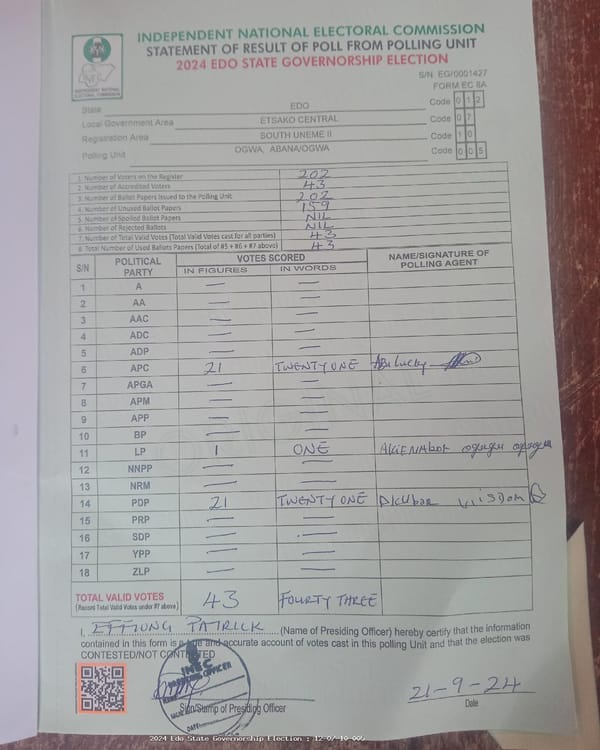 INDEPENDENT NATIONAL ELECTORAL COMMISSION
STATEMENT OF RESULT OF POLL FROM POLLING UNIT
2024 EDO STATE GOVERNORSHIP ELECTION
INEC
INDEPENDENT NATIONAL ELECTORAL COMMISSION
S/N. EG/0001427
FORM EC 8A
State EDO Code 0 1 2
Local Government Area ETSAKO CENTRAL Code 0 7
Registration Area SOUTH UNEME II Code 1 0
Polling Unit OGWA, ABANA/OGWA Code 0 0 5
1. Number of Voters on the Register 202
2. Number of Accredited Voters 43
3. Number of Ballot Papers Issued to the Polling Unit 202
4. Number of Unused Ballot Papers 159
5. Number of Spoiled Ballot Papers NIL
6. Number of Rejected Ballots NIL
7. Number of Total Valid Votes (Total Valid Votes cast for all parties) 43
8. Total Number of Used Ballots Papers (Total of #5 + #6 + #7 above) 43
S/N POLITICAL PARTY VOTES SCORED NAME/SIGNATURE OF POLLING AGENT
IN FIGURES IN WORDS
1 A — —
2 AA — —
3 AAC — —
4 ADC — —
5 ADP — —
6 APC 21 TWENTY ONE Abu Lucky
7 APGA — —
8 APM — —
9 APP — —
10 BP — —
11 LP 1 ONE
12 NNPP — —
13 NRM — —
14 PDP 21 TWENTY ONE WISDOM
15 PRP — —
16 SDP — —
17 YPP — —
18 ZLP — —
TOTAL VALID VOTES 43 FOURTY THREE
(Record Total Valid Votes under #7 above)
I, EFFIONG PATRICK (Name of Presiding Officer) hereby certify that the information
contained in this form is a true and accurate account of votes cast in this polling Unit and that the election was
CONTESTED/NOT CONTESTED
INEC
PRESIDING OFFICER
DATE
Sign/Stamp of Presiding Officer
21-9-24
Date
2024 Edo State Governorship Election : 12-07-10-005